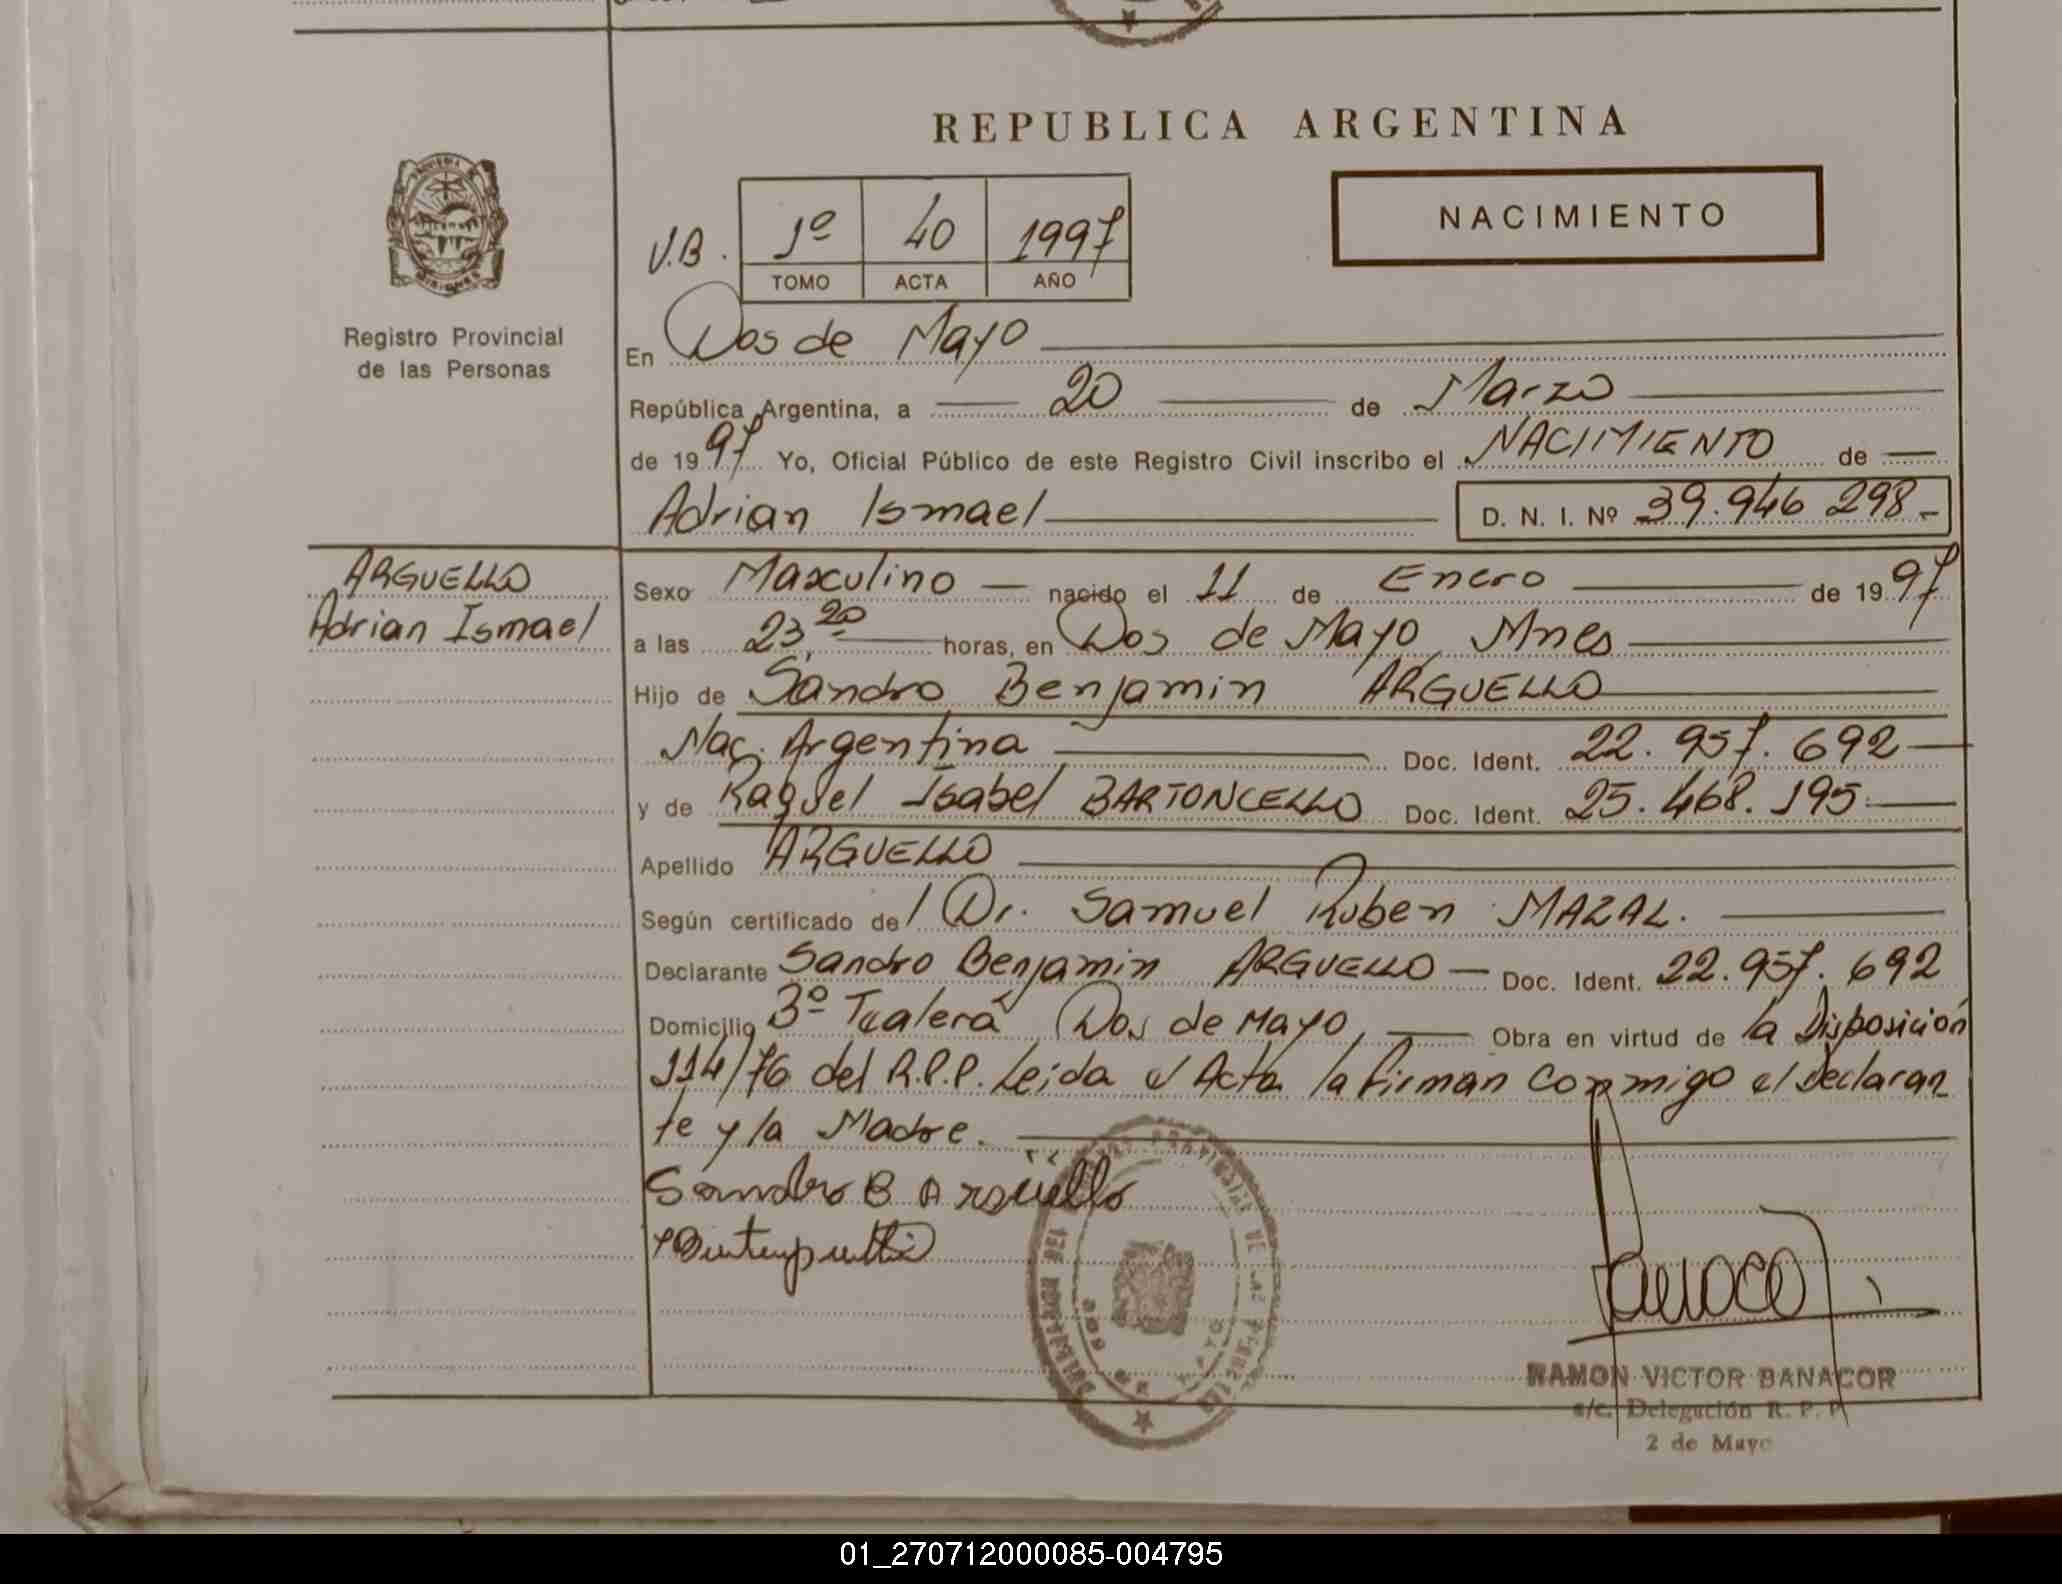 REPUBLICA ARGENTINA
NACIMIENTO
V.B. 1º 40 1997
TOMO ACTA AÑO
Registro Provincial
de las Personas
En Dos de Mayo
República Argentina, a 20 de Marzo
de 1997 Yo, Oficial Público de este Registro Civil inscribo el NACIMIENTO de
Adrian Ismael D. N. I. Nº 39.946 298-
ARGUELLO
Adrian Ismael
Sexo Masculino nacido el 11 de Enero de 1997
a las 23,20 horas, en Dos de Mayo, Mnes
Hijo de Sandro Benjamin ARGUELLO
Nac. Argentina Doc. Ident. 22.957.692
y de Raquel Isabel BARTONCELLO Doc. Ident. 25.468.195
Apellido ARGUELLO
Según certificado de Dr. Samuel Ruben MAZAL.
Declarante Sandro Benjamin ARGUELLO Doc. Ident. 22.957.692
Domicilio 3º Dos de Mayo, Obra en virtud de la Disposición
114/76 del R.P.P. Leida el Acta la firman conmigo el Declaran
te y la Madre.
Sandro B Argüello
RAMON VICTOR BANACOR
a/c. Delegación R. P. P
2 de Mayo
01_270712000085-004795